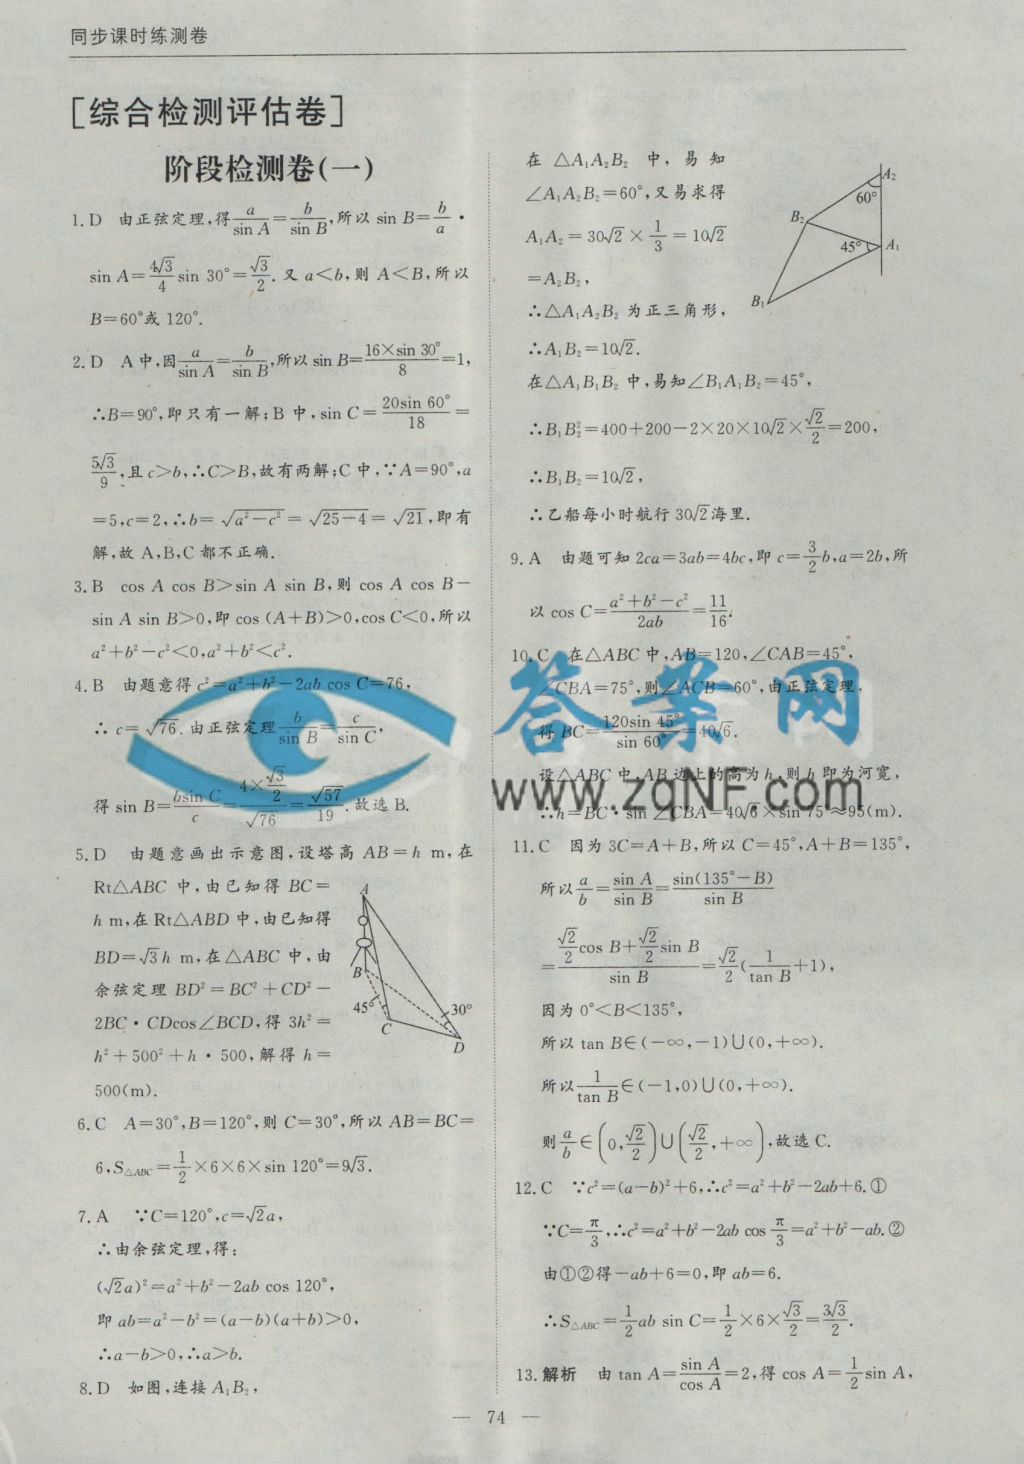 同步课时练测卷
[综合检测评估卷]
阶段检测卷(一)
1. D 由正弦定理,得a/sin A=b/sin B,所以 sin B=b/a·
sin A=4√3/4 sin 30°=√3/2. 又 a<b,则 A<B,所以
B=60°或 120°.
2. D A 中,因a/sin A=b/sin B,所以 sin B=16×sin 30°/8=1,
∴B=90°,即只有一解;B 中,sin C=20sin 60°/18=
5√3/9,且 c>b,∴C>B,故有两解;C 中,∵A=90°,a
=5,c=2,∴b=√(a²-c²)=√(25-4)=√21,即有
解,故 A,B,C 都不正确.
3. B cos A cos B>sin A sin B,则 cos A cos B-
sin A sin B>0,即 cos (A+B)>0,cos C<0,所以
a²+b²-c²<0,a²+b²<c².
4. B 由题意得 c²=a²+b²-2ab cos C=76,
∴ c=√76. 由正弦定理b/sin B=c/sin C,
得 sin B=bsin C/c=(4×√3/2)/√76=√57/19. 故选 B.
5. D 由题意画出示意图,设塔高 AB=h m,在
Rt△ABC 中,由已知得 BC=
h m,在 Rt△ABD 中,由已知得
BD=√3h m,在△ABC 中,由
余弦定理 BD²=BC²+CD²-
2BC·CDcos∠BCD,得 3h²=
h²+500²+h·500,解得 h=
500(m).
A
B
45°
C
30°
D
6. C A=30°,B=120°,则 C=30°,所以 AB=BC=
6,S△ABC=1/2×6×6×sin 120°=9√3.
7. A ∵C=120°,c=√2a,
∴由余弦定理,得:
(√2a)²=a²+b²-2ab cos 120°,
即 ab=a²-b²=(a-b)(a+b)>0,
∴a-b>0,∴a>b.
8. D 如图,连接 A₁B₂,
在 △A₁A₂B₂ 中,易知
∠A₁A₂B₂=60°,又易求得
A₁A₂=30√2×1/3=10√2
=A₂B₂,
∴△A₁A₂B₂ 为正三角形,
∴A₁B₂=10√2.
A₂
60°
B₂
45°
A₁
B₁
在△A₁B₁B₂ 中,易知∠B₁A₁B₂=45°,
∴B₁B₂²=400+200-2×20×10√2×√2/2=200,
∴B₁B₂=10√2,
∴乙船每小时航行 30√2海里.
9. A 由题可知 2ca=3ab=4bc,即 c=3/2b,a=2b,所
以 cos C=(a²+b²-c²)/2ab=11/16.
10. C 在△ABC 中,AB=120,∠CAB=45°,
∠CBA=75°,则∠ACB=60°,由正弦定理,
得 BC=120sin 45°/sin 60°=40√6.
设△ABC 中,AB 边上的高为 h,则 h 即为河宽,
∴h=BC·sin ∠CBA=40√6×sin 75°≈95(m).
11. C 因为 3C=A+B,所以 C=45°,A+B=135°,
所以a/b=sin A/sin B=sin(135°-B)/sin B
=(√2/2cos B+√2/2sin B)/sin B=√2/2(1/tan B+1),
因为 0°<B<135°,
所以 tan B∈(-∞,-1)∪(0,+∞).
所以1/tan B∈(-1,0)∪(0,+∞).
则a/b∈(0,√2/2)∪(√2/2,+∞),故选 C.
12. C ∵c²=(a-b)²+6,∴c²=a²+b²-2ab+6.①
∵C=π/3,∴c²=a²+b²-2ab cosπ/3=a²+b²-ab.②
由①②得-ab+6=0,即 ab=6.
∴S△ABC=1/2ab sin C=1/2×6×√3/2=3√3/2.
13. 解析 由 tan A=sin A/cos A=2,得 cos A=1/2sin A,
— 74 —
答案网
www.zqNF.com